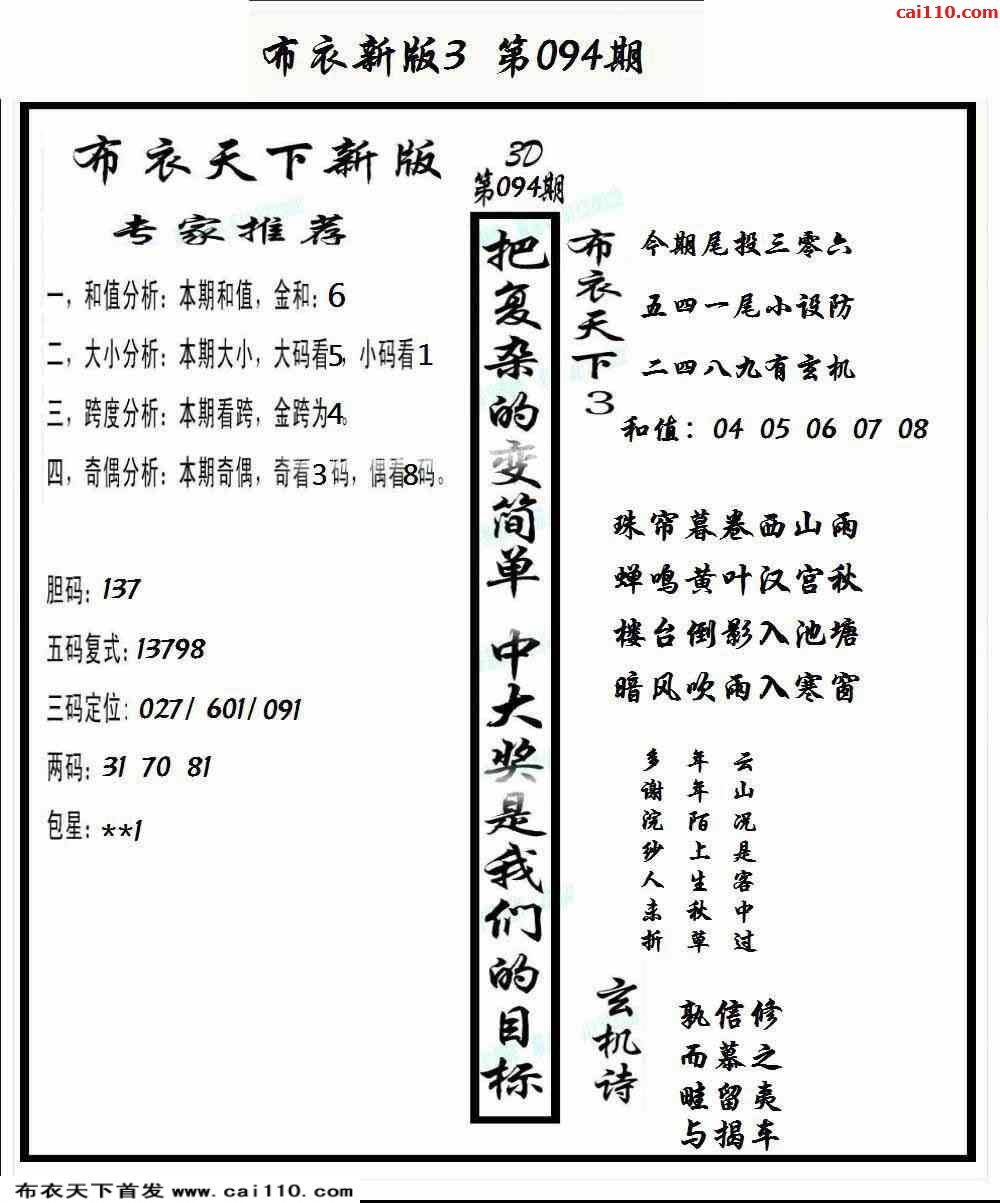 cai110.com
布衣新版3 第094期
布衣天下新版
专家推荐
一，和值分析：本期和值，金和：6
二，大小分析：本期大小，大码看5，小码看1
三，跨度分析：本期看跨，金跨为4。
四，奇偶分析：本期奇偶，奇看3码，偶看8码。
胆码：137
五码复式：13798
三码定位：027/ 601/ 091
两码：31 70 81
包星：**1
3D
第094期
把复杂的变简单 中大奖是我们的目标
布衣天下3
今期尾投三零六
五四一尾小设防
二四八九有玄机
和值：04 05 06 07 08
珠帘暮卷西山雨
蝉鸣黄叶汉宫秋
楼台倒影入池塘
暗风吹雨入寒窗
云山况是客中过
年年陌上生秋草
多谢浣纱人未折
玄机诗
孰信修
而慕之
畦留夷
与揭车
布衣天下首发 www.cai110.com